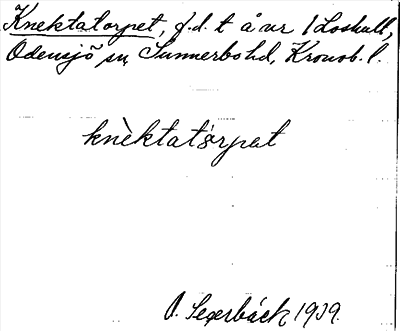 Knektatorpet, f.d. t å ur 1 Loshult,
Odensjö sn, Sunnerbo hd, Kronob. l.
knèktatårpat
O. Segerbäck 1939.